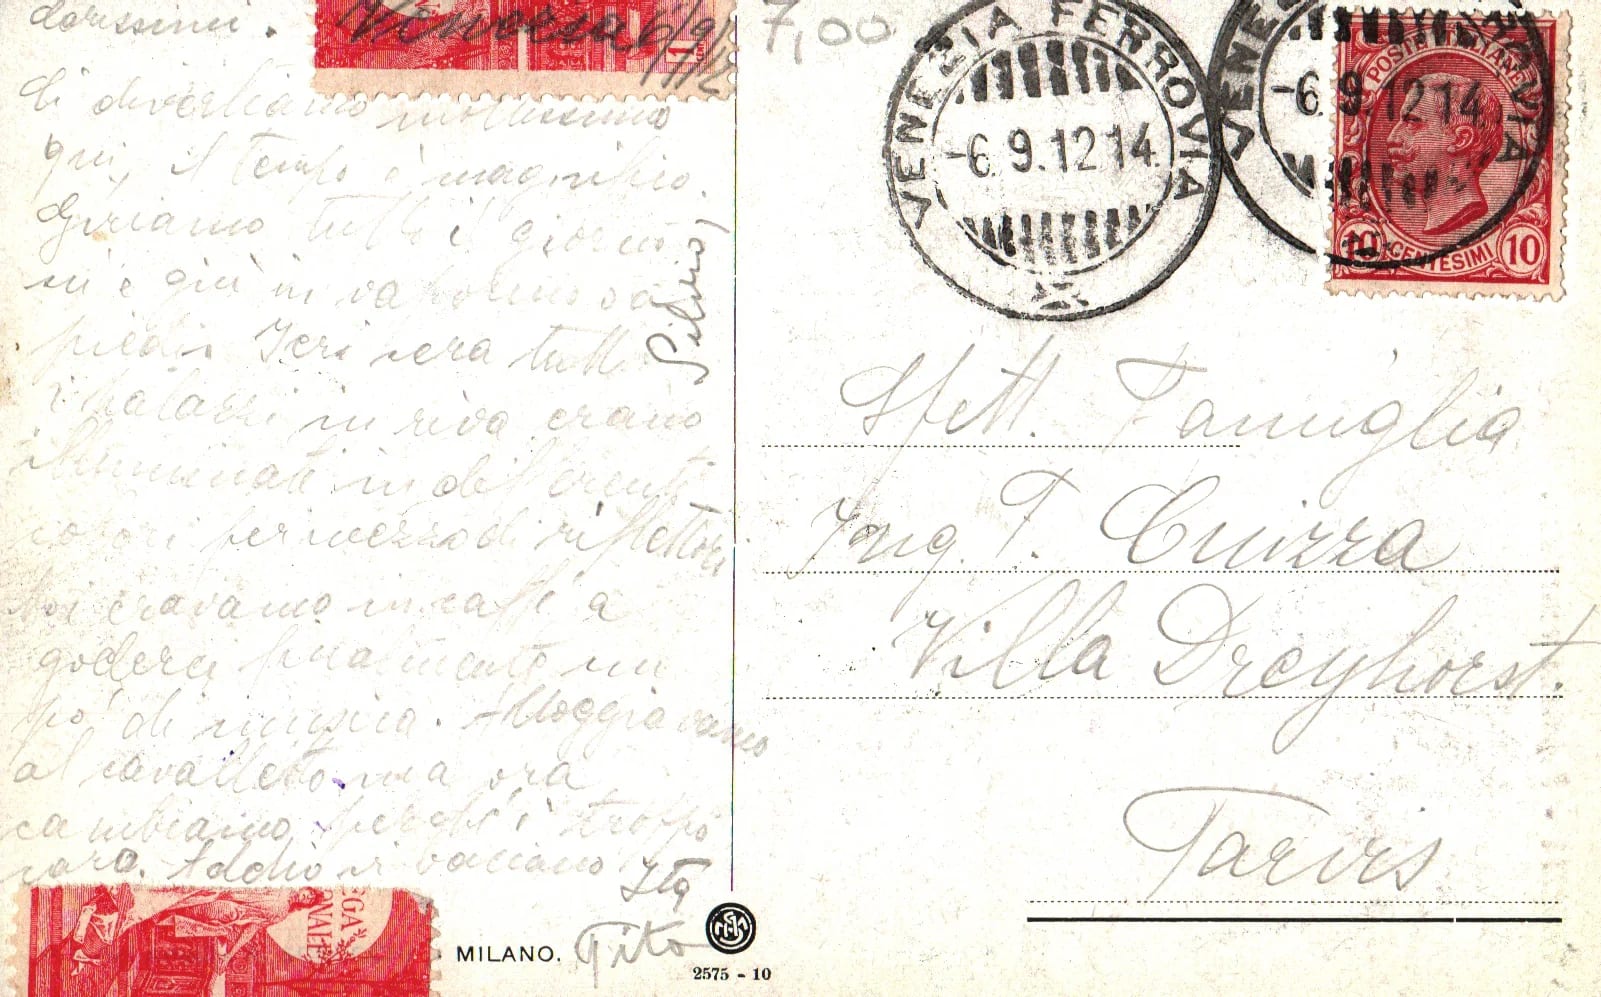 Venezia 6/9/12
dorissimi.
Ci divertiamo moltissimo
qui, il tempo è magnifico.
Giriamo tutto il giorno
su e giù in vaporino o a
piedi. Ieri sera tutti
i palazzi in riva erano
illuminati in differenti
colori per mezzo di riflettori
Noi eravamo in caffè a
goderci finalmente un
po' di musica. Alloggiavamo
al cavalletto ma ora
cambiamo perché è troppo
caro. Addio vi baciamo
Ita
Tito
Silvio
MILANO.
2575 - 10
7,00
VENEZIA FERROVIA
-6.9.12 14
VENEZIA FERROVIA
-6.9.12 14
POSTE ITALIANE
10 CENTESIMI 10
Spett. Famiglia
Ing. T. Cuizza
Villa Dreyhorst.
Tarvis